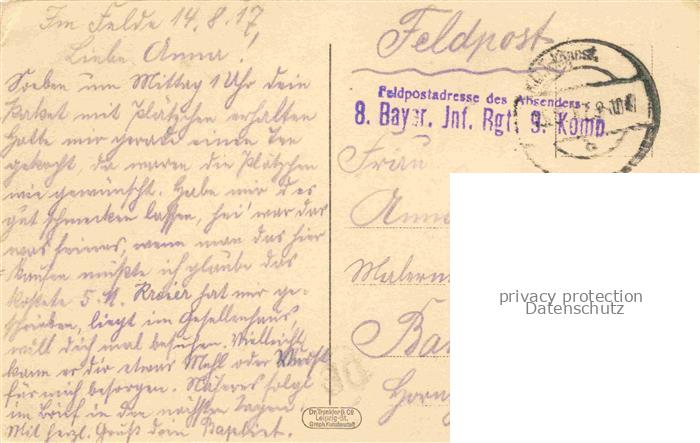 Im Felde 14.8.17,
Liebe Anna!
Soeben um Mittag 1 Uhr dein
Paket mit Plätzchen erhalten
Hatte mir gerade einen Tee
gekocht, da waren die Plätzchen
wie gewünscht. Habe mir d es
gut schmecken lassen, hei' war das
was feines, wenn man das hier
kaufen müßte ich glaube das
kostete 5 M. Kreier hat mir ge-
schrieben, liegt im Gesellenhaus
will dich mal besuchen. Vielleicht
kann er dir etwas Mehl oder Wurst
für mich besorgen. Näheres folgt
im Brief in den nächsten Tagen
Mit herzl. Gruß dein
Feldpost
Feldpostadresse des Absenders
8. Bayer. Inf. Rgt. 9. Komp.
Frau
Anna
Malerm
Ba
Horn
privacy protection
Datenschutz
Dr. Trenkler & Co.
Leipzig-St.
Graph. Kunstanstalt